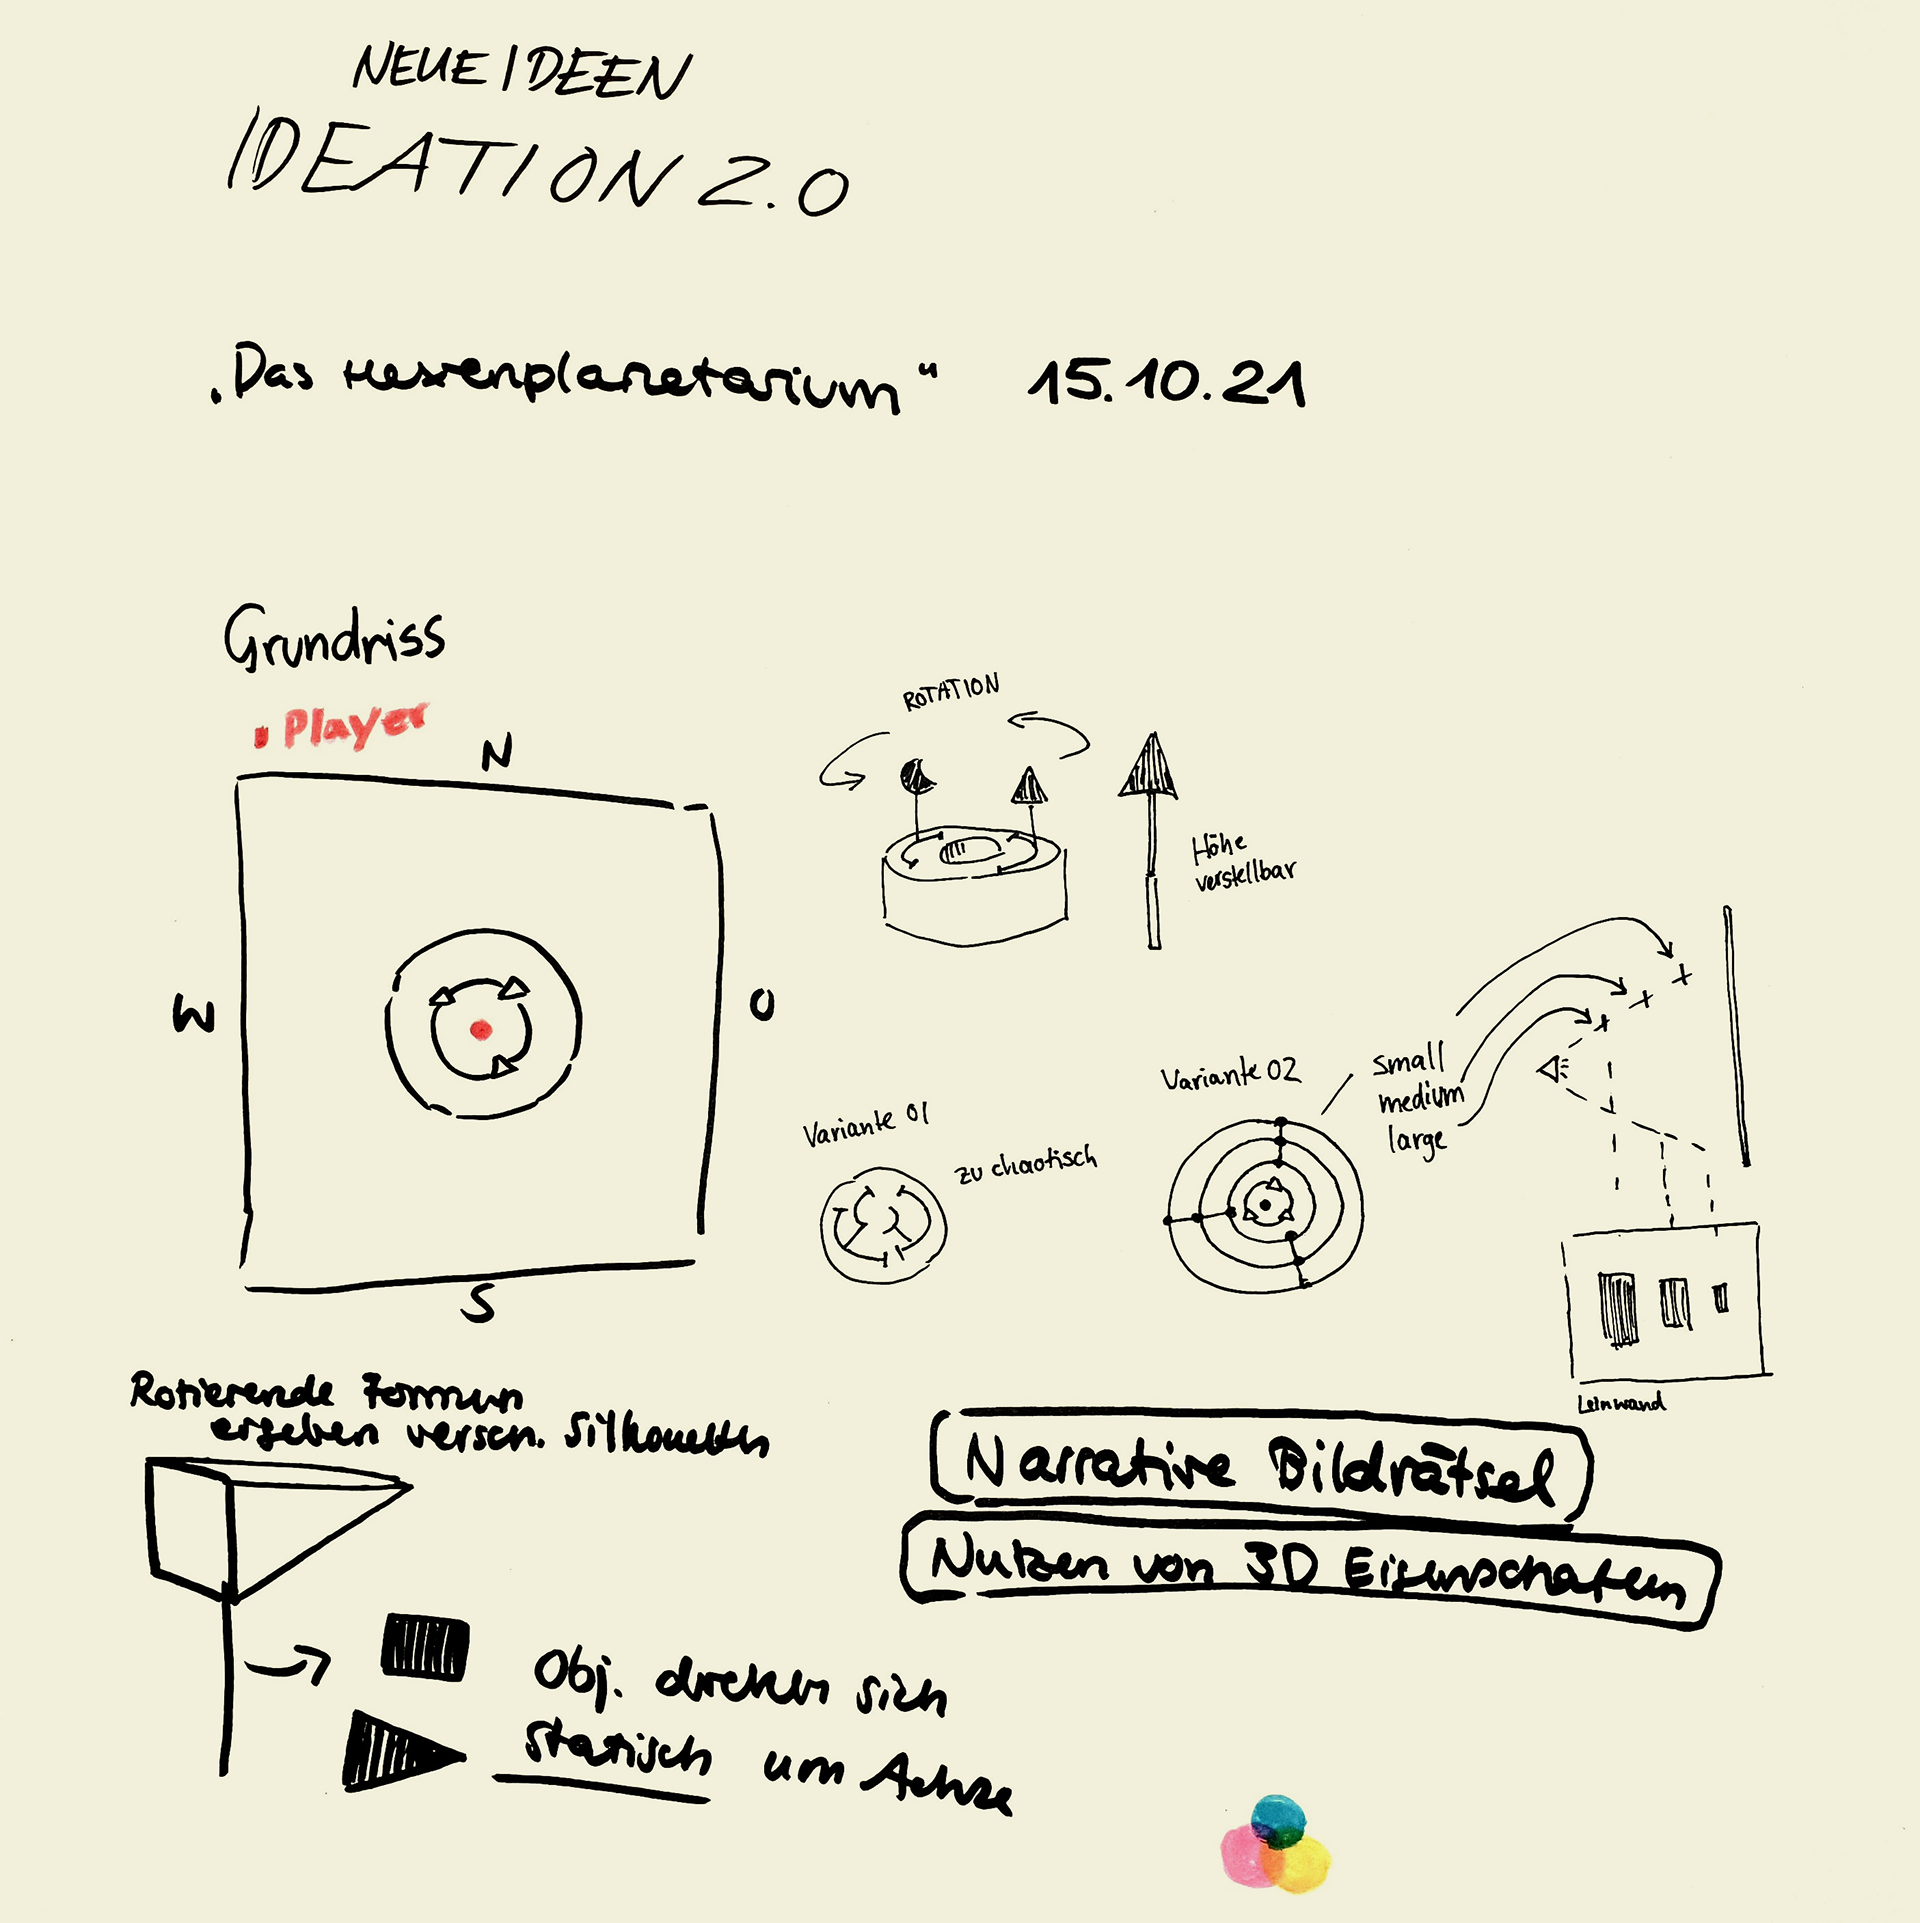 NEUE IDEEN
IDEATION 2.0
„Das Hexenplanetarium“ 15.10.21
Grundriss
Player
N
W
O
S
ROTATION
Höhe
verstellbar
Variante 01
zu chaotisch
Variante 02
small
medium
large
Leinwand
Rotierende Formen
ergeben versch. Silhouetten
Narrative Bildrätsel
Nutzen von 3D Eigenschaften
Obj. drehen sich
statisch um Achse